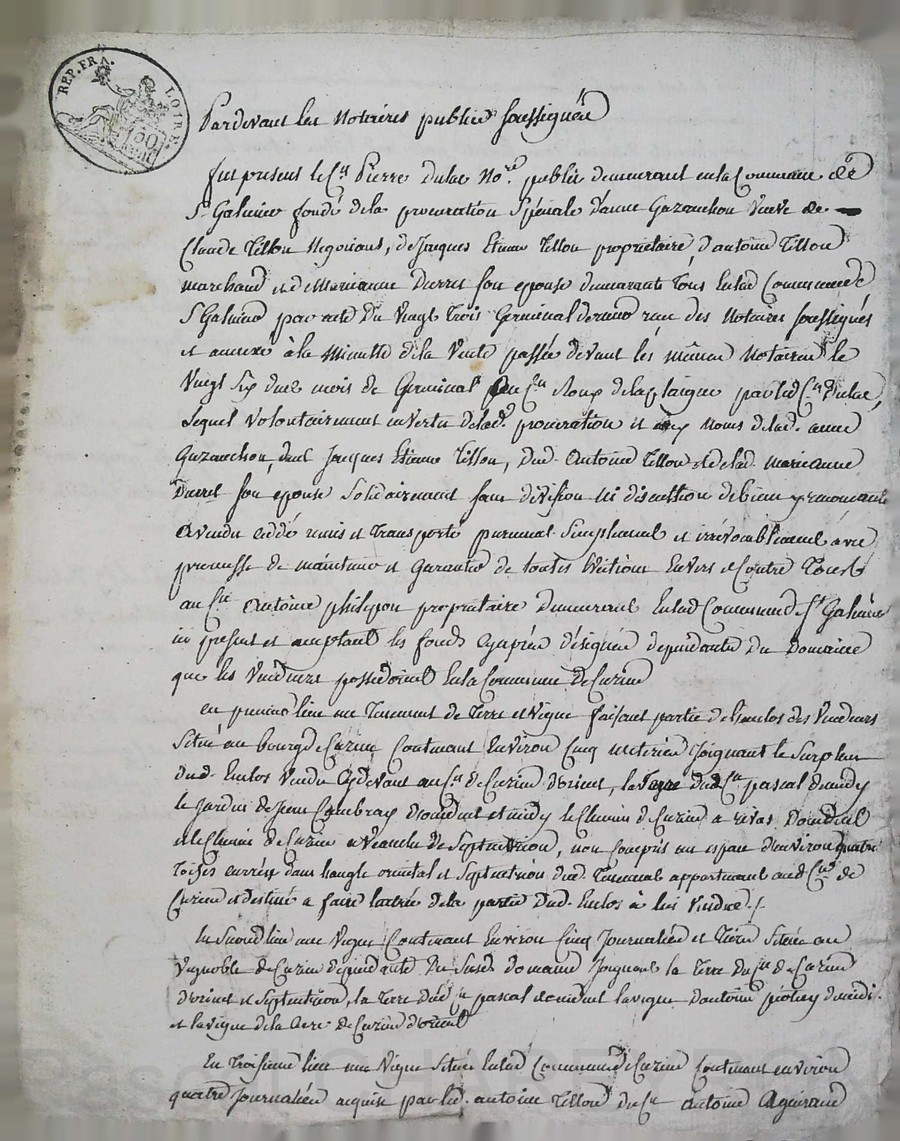 REP. FRA.
LOIRE.
Pardevant les Notaires publics soussignés
fut présent le Cen Pierre Dulac Nore public demeurant en la Commune de
St Galmier fondé de la procuration Spéciale d'anne Gazanchon Veuve de
Claude Tillon Négociant, de Jacques Etienne Tillon propriétaire, d'antoine Tillon
marchand et de Marianne Durret son epouse demeurant tous en lad Commune de
St Galmier par acte du Vingt Trois Germinal dernier reçu des Notaires soussignés
et annexé à la Minutte de la Vente passée devant les mêmes Notaires le
Vingt Six dud mois de Germinal au Cen par led Cen Dulac,
Lequel Volontairement en vertu de lad. procuration et aux Noms de lad. anne
Gazanchon, dud Jacques Etienne Tillon, dud. Antoine Tillon et de lad. marianne
Durret son epouse Solidairement sans division ni discussion de biens y renonçants
a vendu cédé remis et transporté purement Simplement et irrévocablement avec
promesse de maintenir et garantir de toutes évictions Envers et Contre Tous
au Cen Antoine philipon propriétaire demeurant en lad Commune de St Galmier
ici present et acceptant les fonds cyaprès désignés dépendants du Domaine
que les Vendeurs possédoient en la Commune de Cuzieu
en premier lieu un Tenement de Terre et Vigne faisant partie de l'enclos des Vendeurs
Situé au bourg de Cuzieu Contenant Environ Cinq meterées Joignant le Surplus
dud. Enclos Vendu Cydevant au Cen de Cuzieu d'orient, la Vigne dud Cen pascal de midy
le Jardin de Jean Combray d'occident et midy le Chemin de Cuzieu a rivas d'occident
et le Chemin de Cuzieu a Veauche de Septentrion, non Compris un espace d'environ quatre
Toises carrées dans l'angle oriental et Septentrion dud. Tenement appartenant aud Cen de
Cuzieu et destiné a faire l'entrée de la partie dud. Enclos à lui Vendue ./.
En Second lieu une Vigne Contenant Environ Cinq Journalées et Tiers Située au
Vignoble de Cuzieu dépendante du Susd. domaine Joignant la Terre du Cen de Cuzieu
d'orient et Septentrion, la Terre dud. Cen pascal d'occident la vigne d'antoine de midi.
et la vigne de la Cure de Cuzieu d'orient
En Troisième lieu une Vigne Située en lad Commune de Cuzieu Contenant environ
quatre Journalées acquise par led. antoine Tillon du Cen antoine